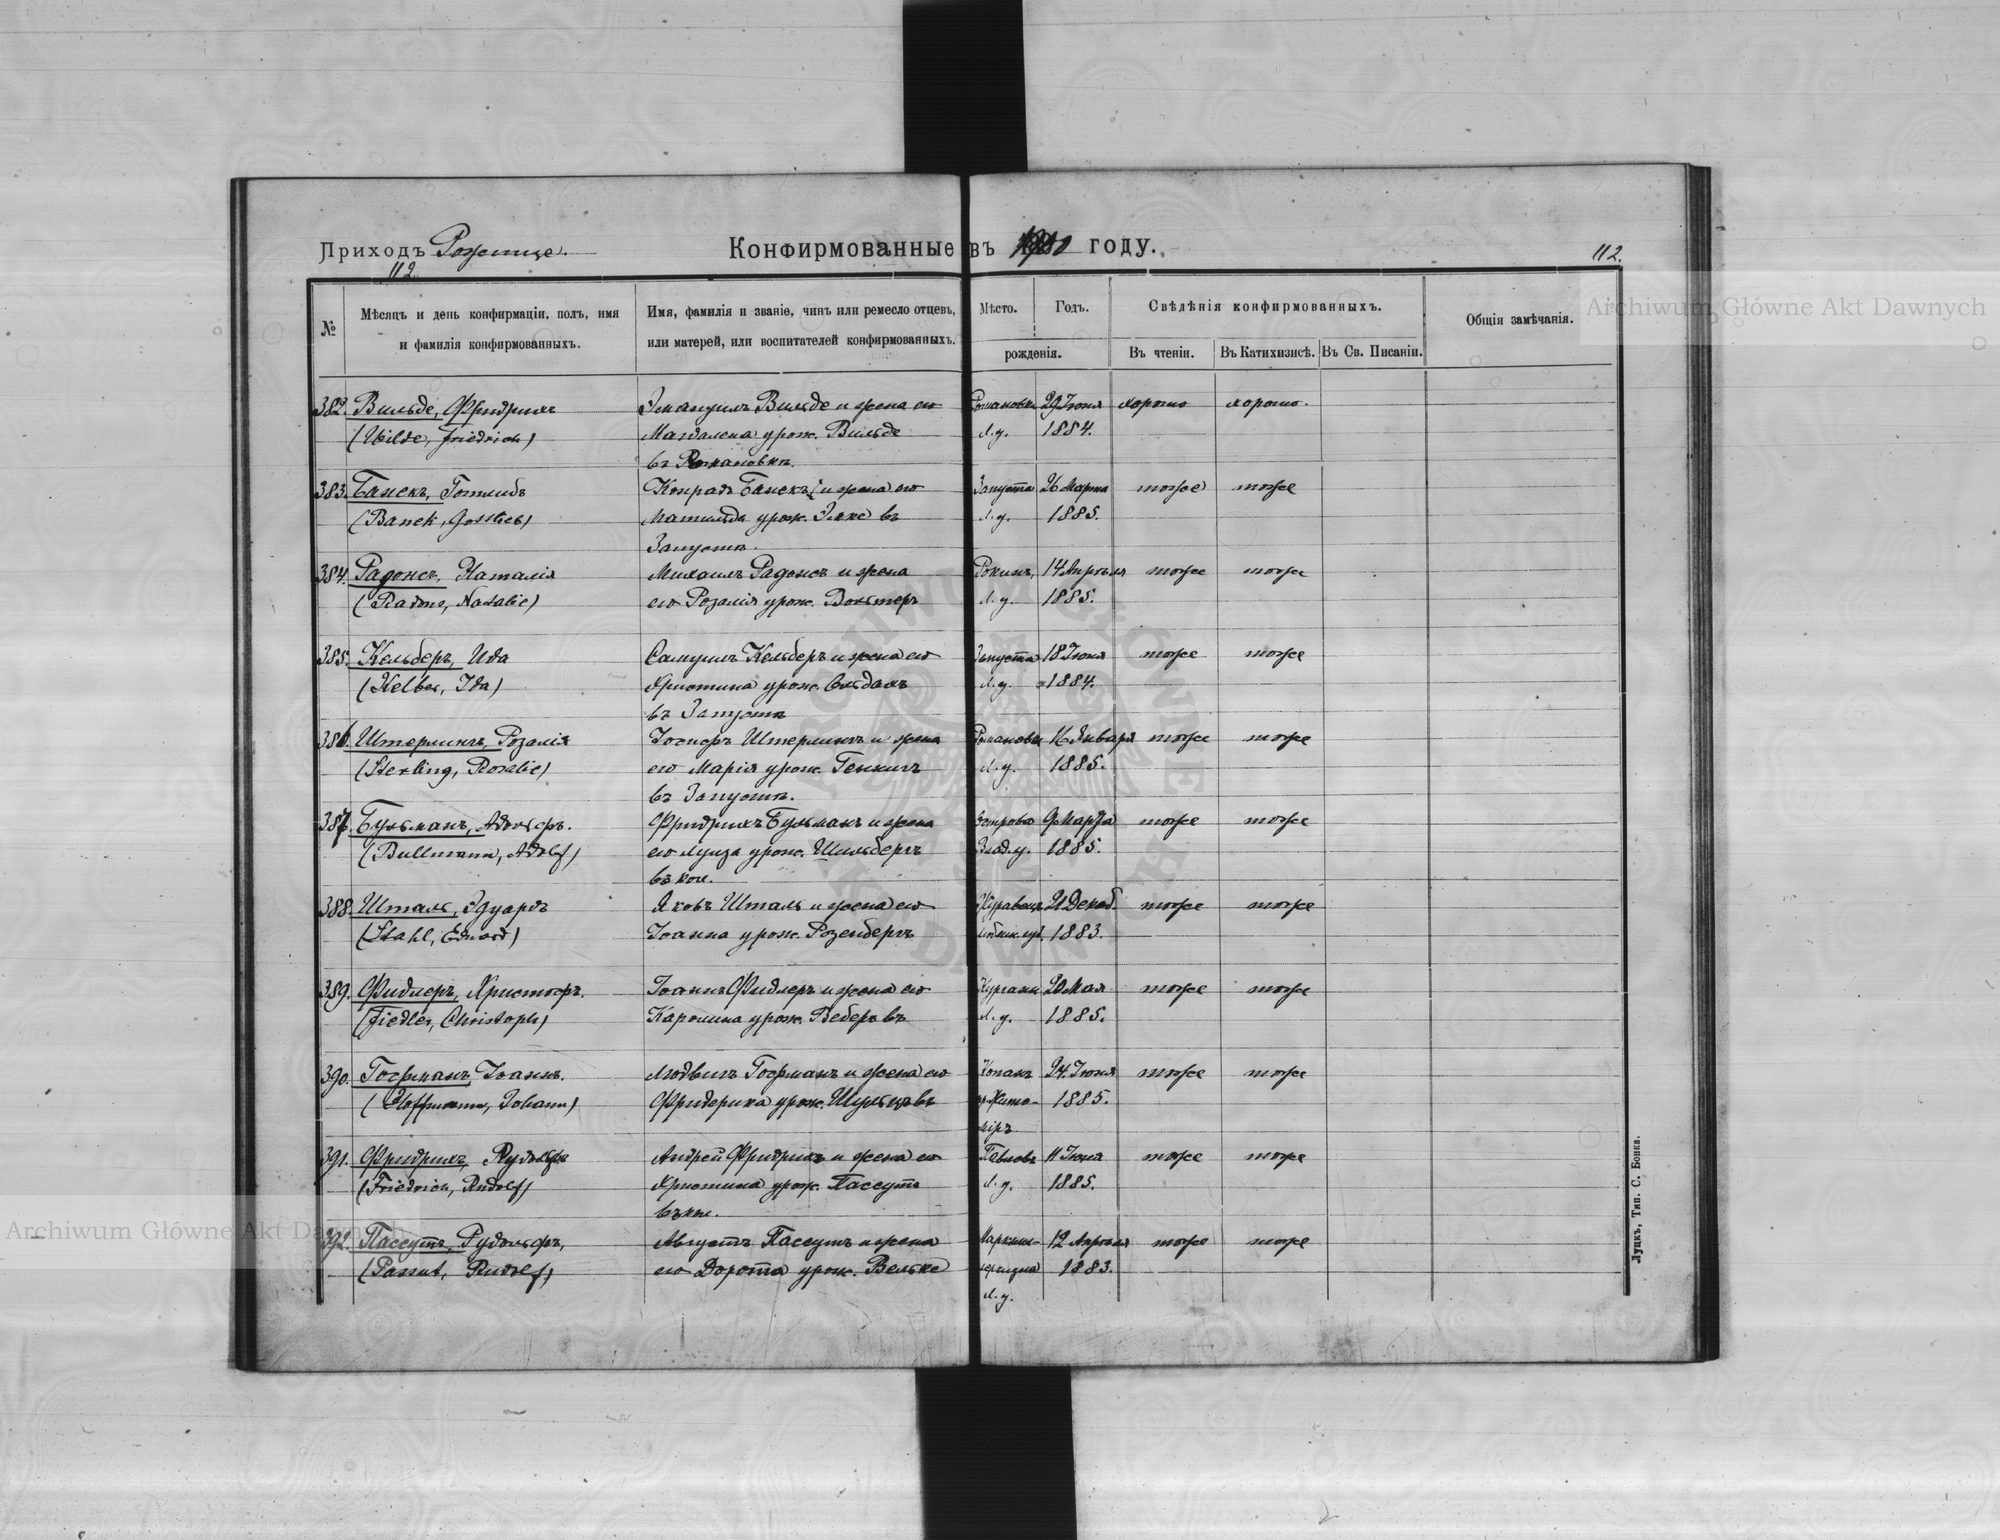 Приходъ Рожище.
Конфирмованные въ году.
112.
112.
№
Мѣсяцъ и день конфирмаціи, полъ, имя
и фамилія конфирмованныхъ.
Имя, фамилія и званіе, чинъ или ремесло отцевъ,
или матерей, или воспитателей конфирмованныхъ.
Мѣсто. Годъ.
рожденія.
Свѣдѣнія конфирмованныхъ.
Въ чтеніи. Въ Катихизисѣ. Въ Св. Писаніи.
Общія замѣчанія.
382. Вильде, Фридрихъ Эмануилъ Вильде и жена его Романовка 29 Іюня хорошо хорошо.
(Wilde, Friedrich) Магдалена урож. Вильде Л.у. 1884.
въ Романовкѣ.
383. Банекъ, Готлибъ Конрадъ Банекъ и жена его Запуста 26 Марта тоже тоже
(Banek, Gottlieb) Матильда урож. въ Л.у. 1885.
Запустѣ.
384. Радонсъ, Наталія Михаилъ Радонсъ и жена 14 Апрѣля тоже тоже
(Radons, Natalie) его Розалія урож. Л.у. 1885.
385. Кельберъ, Ида Самуилъ Кельберъ и жена его Запуста 18 Іюня тоже тоже
(Kelber, Ida) Христина урож. Л.у. 1884.
въ Запустѣ
386. Штерлингъ, Розалія Штерлингъ и жена Романовка 16 Января тоже тоже
(Sterling, Rosalie) его Марія урож. Л.у. 1885.
въ Запустѣ.
387. Бульманъ, Адольфъ. Фридрихъ Бульманъ и жена Острова 9 Марта тоже тоже
(Bullmann, Adolf) его Луиза урож. Шильбергъ Влад.у. 1885.
въ кол.
388. Шталь, Эдуардъ Яковъ Шталь и жена его 21 Декаб. тоже тоже
(Stahl, Eduard) Іоанна урож. Розенбергъ 1883.
389. Фидлеръ, Христофъ. Іоаннъ Фидлеръ и жена его Курганы 20 Мая тоже тоже
(Fiedler, Christoph) Каролина урож. Веберъ въ Л.у. 1885.
390. Гофманъ, Іоаннъ. Людвигъ Гофманъ и жена его 24 Іюня тоже тоже
(Hoffmann, Johann) Фридерика урож. Шульцъ въ Жито- 1885.
міръ
391. Фридрихъ, Рудольфъ Андрей Фридрихъ и жена его 11 Іюня тоже тоже
(Friedrich, Rudolf) Христина урож. Пассутъ Л.у. 1885.
въ кол.
392. Пассутъ, Рудольфъ, Августъ Пассутъ и жена 12 Апрѣля тоже тоже
(Passut, Rudolf) его Дорота урож. Вельке 1883.
Л.у.
Луцкъ, Тип. С. Бонка.
Archiwum Główne Akt Dawnych
Archiwum Główne Akt Dawnych